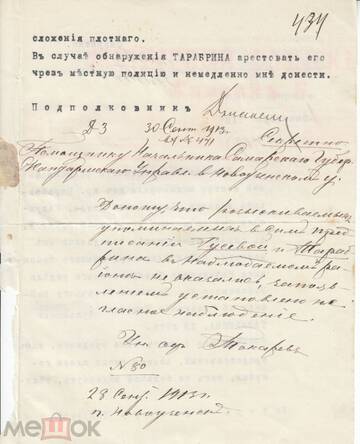 434
сложенія плотнаго.
Въ случаѣ обнаруженія ТАРАБРИНА арестовать его
чрезъ мѣстную полицію и немедленно мнѣ донести.
Подполковникъ
Д3 30 Сент. 1913 г.
вх № 471 Секретно
Помощнику Начальника Самарскаго Губер.
Жандармскаго Управ. в Новоузенском у.
Доношу, что розыскиваемые,
упоминаемые в сем пред
писании Гусевой и Тараб
рина в наблюдаемом ра
йоне не оказалось, за появ
лением установлено не
гласное наблюдение.
Токарев
№ 80
28 Сент. 1913 г.
п. Новоузенск
МЕШОК